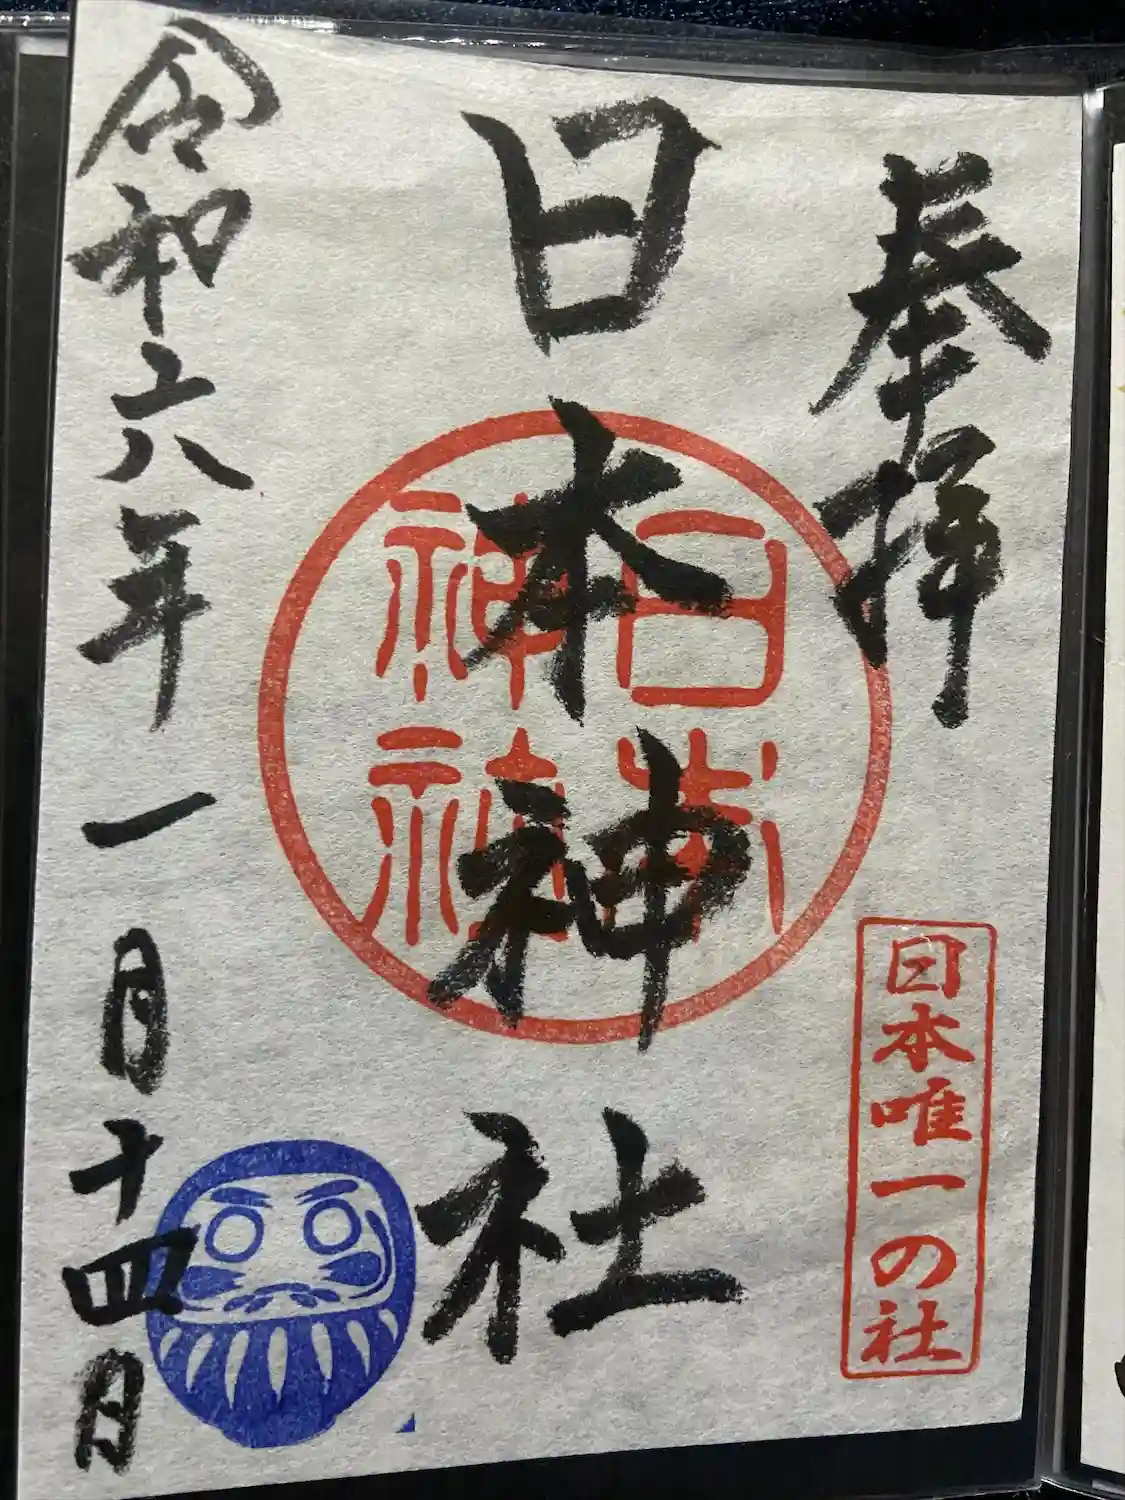 奉拝
日本唯一の社
日本神社
日本
神社
令和六年一月十四日